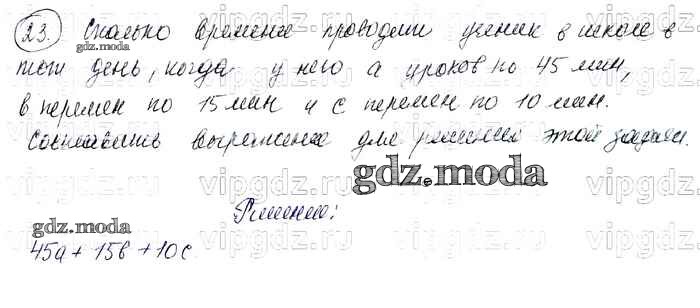 23. Сколько времени проводит ученик в школе в
gdz.moda
тот день, когда у него а уроков по 45 мин,
в перемен по 15 мин и с перемен по 10 мин.
Составить выражение для решения этой задачи.
gdz.moda
Решение:
gdz.moda
45a + 15b + 10c
vipgdz.ru